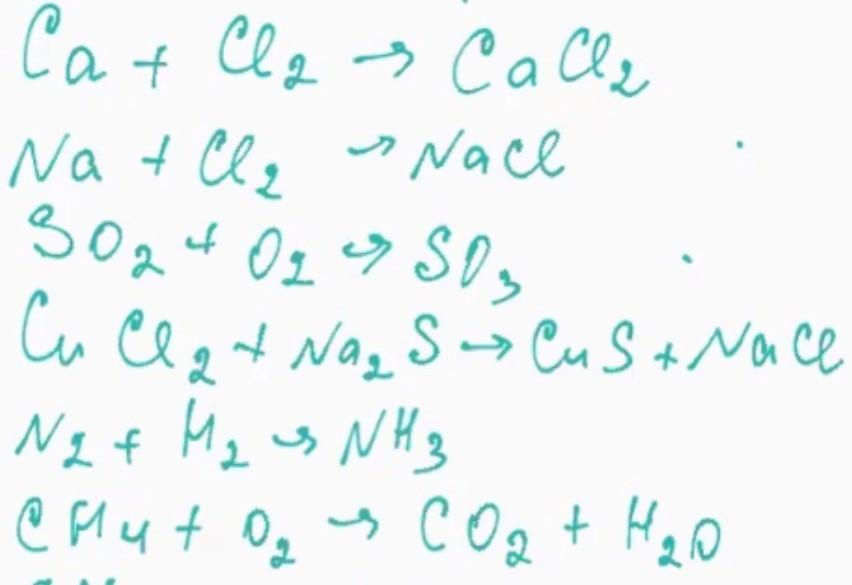 Ca + Cl₂ → CaCl₂
Na + Cl₂ → NaCl
SO₂ + O₂ → SO₃
CuCl₂ + Na₂S → CuS + NaCl
N₂ + H₂ → NH₃
CH₄ + O₂ → CO₂ + H₂O